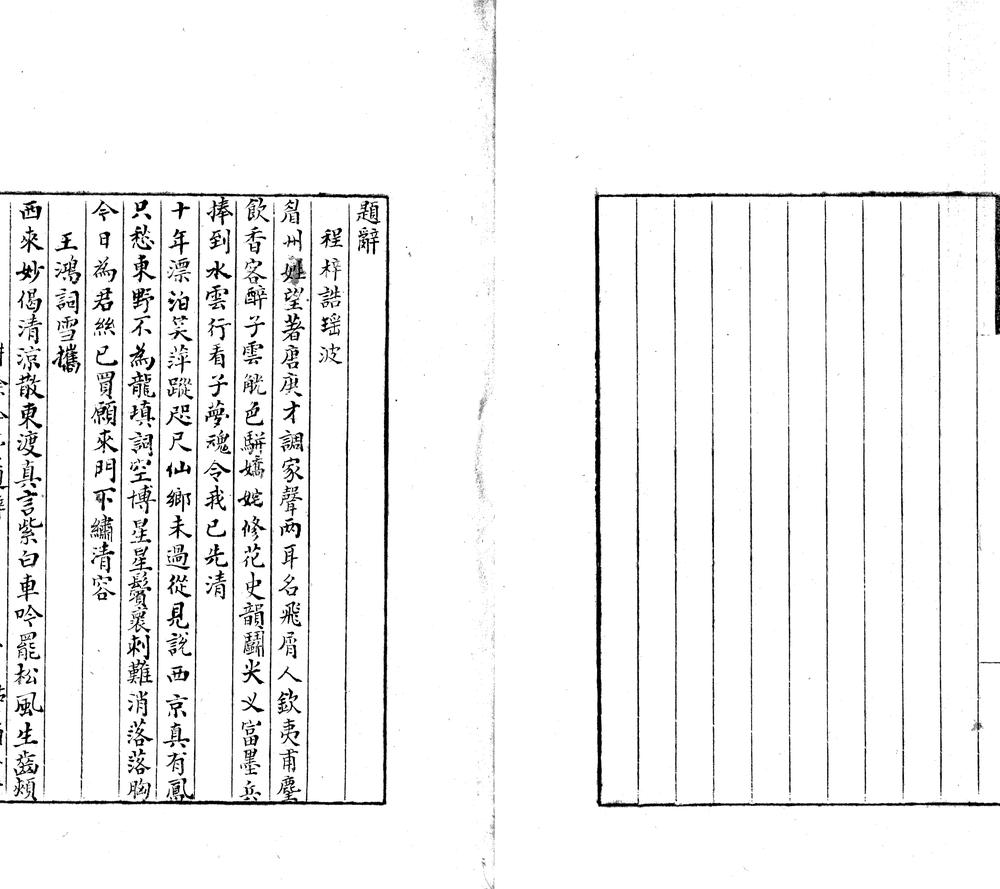 題辭
程梓誥瑶波
眉州姓望著唐庚才調家聲兩耳名飛屑人欽夷甫麈
飲香客醉子雲觥色駢嬌姹修花史韻鬭尖乂富墨兵
捧到水雲行看子夢魂令我已先清
十年漂泊笑萍蹤咫尺仙鄉未過從見說西京真有鳳
只愁東野不為龍填詞空博星星鬢裹刺難消落落胸
今日為君絲已買願來門下繡清容
王鴻詞雪攜
西來妙偈清涼散東渡真言紫白車吟罷松風生齒頰